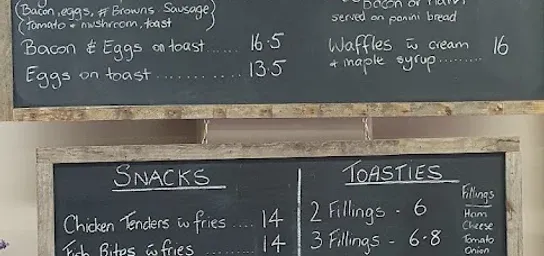 (Bacon, eggs, # Browns Sausage)
(Tomato + mushroom, toast)
Bacon & Eggs on toast ..... 16.5
Eggs on toast ........... 13.5
Bacon or Ham
served on panini bread
Waffles w cream 16
+ maple syrup.........
SNACKS
Chicken Tenders w fries .... 14
Fish Bites w fries ......... 14
TOASTIES
2 Fillings - 6
3 Fillings - 6.8
Fillings
Ham
Cheese
Tomato
Onion